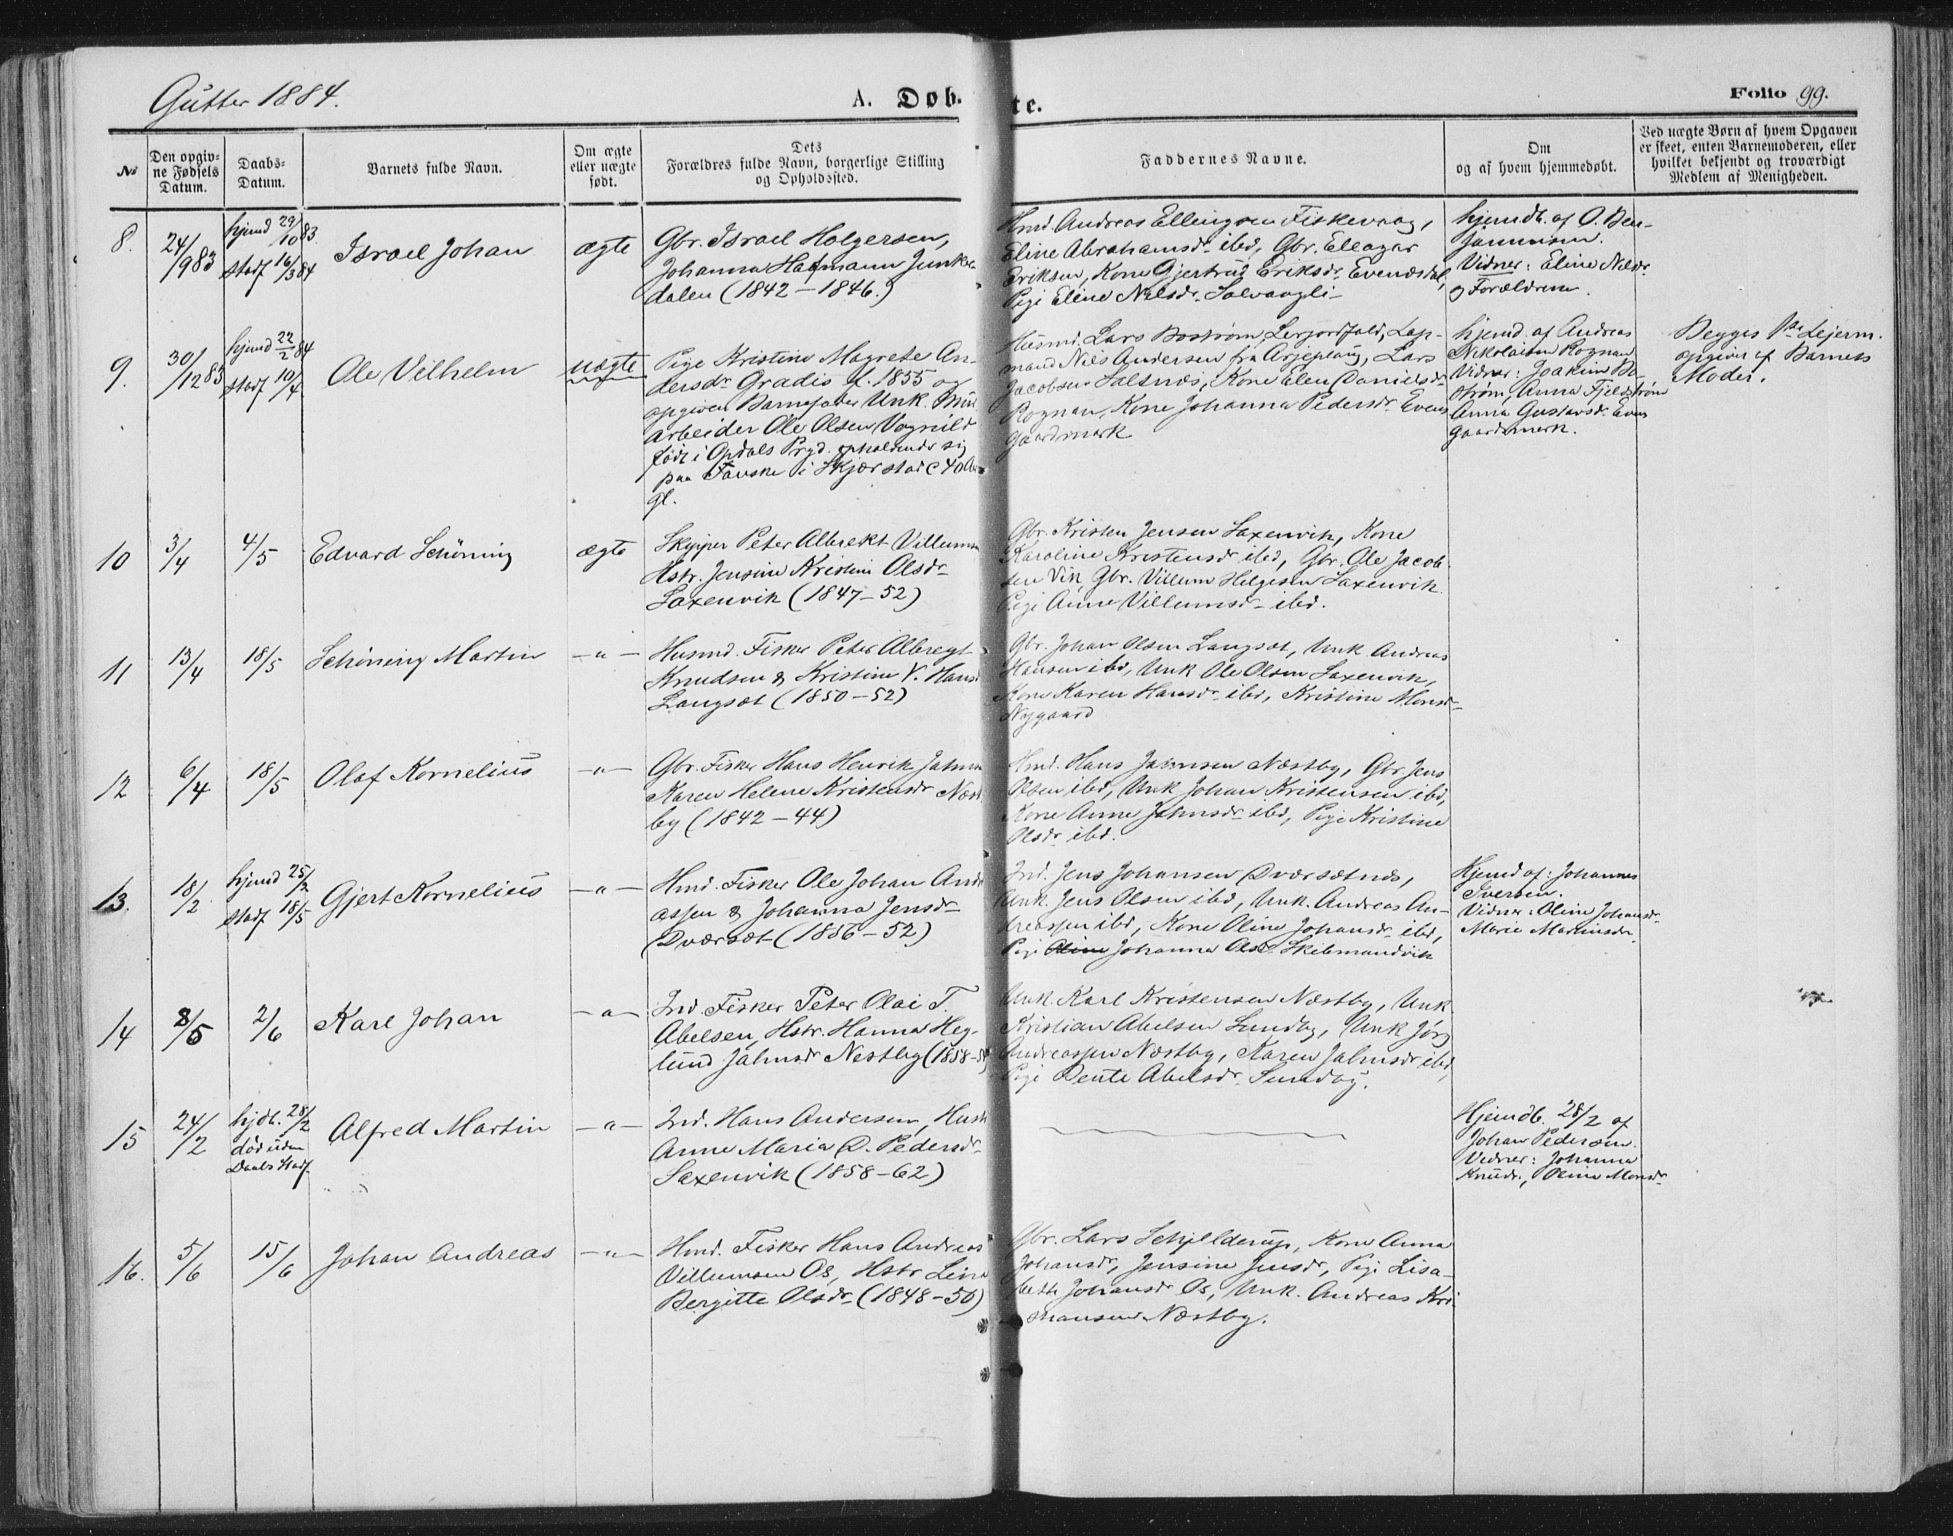 Gutter 1884.
A. Døb-
te.
Folio 99.
No
Den opgiv-
ne Fødsels
Datum.
Daabs-
Datum.
Barnets fulde Navn.
Om ægte
eller uægte
født.
Dets
Forældres fulde Navn, borgerlige Stilling
og Opholdssted.
Faddernes Navne.
Om
og af hvem hjemmedøbt.
Ved uægte Børn af hvem Opgaven
er skeet, enten Barnemoderen, eller
hvilket bekjendt og troværdigt
Medlem af Menigheden.
8.
24/9 83
hjemd 29/10 83
stadf 16/3 84
Israel Johan
ægte
Gbr. Israel Holgersen,
Johanna Hartmann Junker-
dalen (1842–1846.)
Hmd. Andreas Ellingsen Fiskevaag,
Eline Abrahamsdr ibd, Gbr. Eleazar
Eriksen, Kone Gjertrud Eriksdr. Evensdal,
Pige Eline Nilsdr. Solvaagli
hjemdb. af O. Ben-
jaminsen.
Vidner: Eline Nilsdr
og Forældrene.
9.
30/12 83
hjemd 22/2 84
stadf 10/4
Ole Vilhelm
uægte
Pige Kristine Magrete An-
dersdr Gradis f. 1855 og
opgiven Barnefader Unk.
arbeider Ole Olsen Vognild
født i Opdals Prgd. opholdende sig
paa Fauske i Skjerstad c 40 Aar
gl.
Husmd. Lars Bostrøm Lerjordfald, Lap-
mand Nils Andersen fra Arjeplaug, Lars
Jacobsen Saltnæs, Kone Elen Danielsdr
Rognan, Kone Johanna Pedersdr. Evens
gaardsmark
hjemd. af Andreas
Nikolaisen Rognan
Vidner: Joakim Bo-
strøm, Anna Fjeldstrøm
Anna Gustavsdr. Evens
gaardsmark.
Begges 1ste Lejerm.
opgivet af Barnets
Moder.
10
3/4
4/5
Edvard Schöning
ægte
Skipper Peter Albrekt Villumsen
Hstr. Jensine Kristine Olsdr
Saxenvik (1847–52)
Gbr. Kristen Jensen Saxenvik, Kone
Karoline Kristensdr ibd, Gbr. Ole Jacob-
sen Vik, Gbr. Villum Helgesen Saxenvik
Pige Anne Villumsdr ibd.
11
13/4
18/5
Schöning Martin
–"–
Husmd. Fisker Peter Albregt
Knudsen & Kristine V. Hansd
Langsæt (1850–52)
Gbr. Johan Olsen Langsæt, Unk. Andreas
Hansen ibd, Unk Ole Olsen Saxenvik,
Kone Karen Hansdr ibd, Kristine Monsdr
Nygaard
12
6/4
18/5
Olaf Kornelius
–"–
Gbr. Fisker Hans Henrik Jahns
Karen Helene Kristensdr Næst
by (1842–44)
Hmd. Hans Jahnsen Næstby, Gbr Jens
Olsen ibd, Unk Johan Kristensen ibd,
Kone Anne Jahnsdr ibd, Pige Kristine
Olsdr ibd.
13.
18/2
hjemd 25/2
stadf 18/5
Gjert Kornelius
–"–
Hmd. Fisker Ole Johan Andr
assen & Johanna Jensdr
Dværsæt (1856–52)
Ind. Jens Johansen Dværsætnæs,
Unk. Jens Olsen ibd, Unk. Andreas An-
dreassen ibd, Kone Oline Johansdr ibd,
Pige Oline Johanna Olsdr. Skibmandvik
Hjemd af: Johannes
Iversen.
Vidner: Oline Johansdr
Marie Martinsdr.
14
8/5
2/6
Karl Johan
–"–
Ind. Fisker Peter Olai T.
Abelsen, Hstr. Hanna Heg-
lund Jahnsdr Nestby (1858–59)
Unk. Karl Kristensen Næstby, Unk
Kristian Abelsen Sundby, Unk Jørg
Andreassen Næstby, Karen Jahnsdr ibd,
Pige Dente Abelsdr. Sundby.
15
24/2
hjdb. 28/2
død uden
Daabs Stadf
Alfred Martin
–"–
Ind. Hans Andersen, Hust
Anne Maria D. Pedersdr
Saxenvik (1858–62)
Hjemdb. 28/2 af
Johan Pedersen.
Vidner: Johanna
Knudr., Oline Monsdr
16.
5/6
15/6
Johan Andreas
–"–
Hmd. Fisker Hans Andreas
Villumsen Os, Hstr Lina
Bergitte Olsdr (1848–50)
Gbr. Lars Schjelderup, Kone Anna
Johansdr, Jensine Jensdr, Pige Lisa-
beth Johansdr Os, Unk. Andreas Kri-
stiansen Næstby.